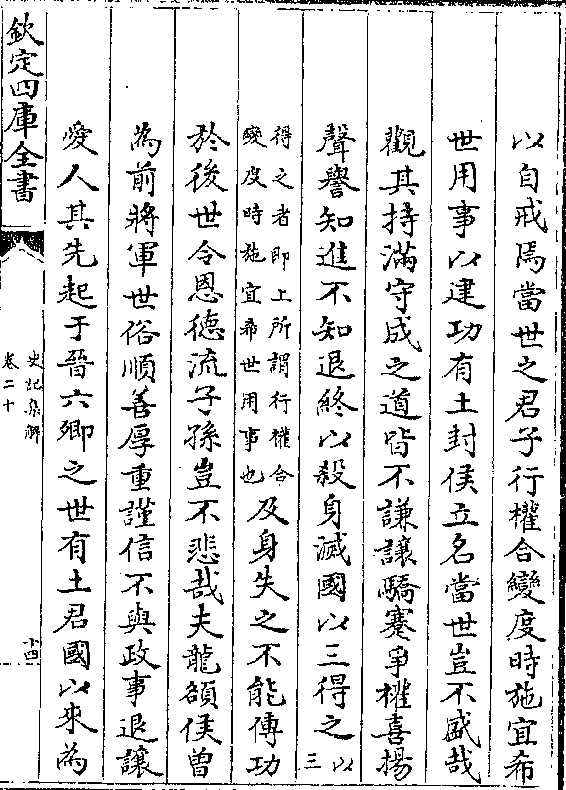 以自戒焉當世之君子行權合變度時施宜希
世用事以建功有土封侯立名當世豈不盛哉
觀其持滿守成之道皆不謙讓驕蹇爭權喜揚
聲譽知進不知退終以殺身滅國以三得之以三
得之者即上所謂行權合
變度時施宜希世用事也及身失之不能傳功
於後世令恩德流子孫豈不悲哉夫龍頟侯曾
為前將軍世俗順善厚重謹信不與政事退讓
愛人其先起于晉六卿之世有土君國以來為
欽定四庫全書
史記集解
卷二十
十四